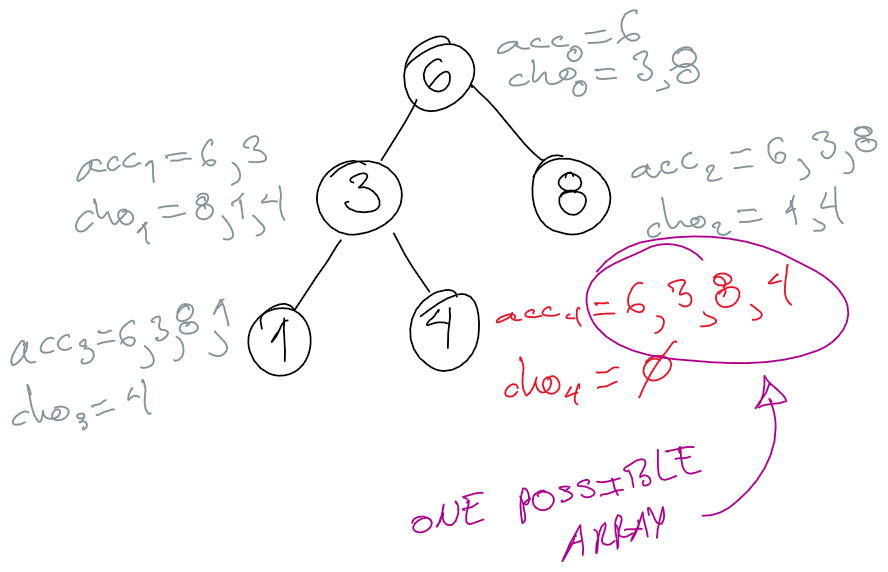 acc₀=6
cho₀=3,8
6
acc₁=6,3
cho₁=8,1,4
3
8
acc₂=6,3,8
cho₂=1,4
acc₃=6,3,8,1
cho₃=4
1
4
acc₄=6,3,8,4
cho₄=∅
ONE POSSIBLE
ARRAY